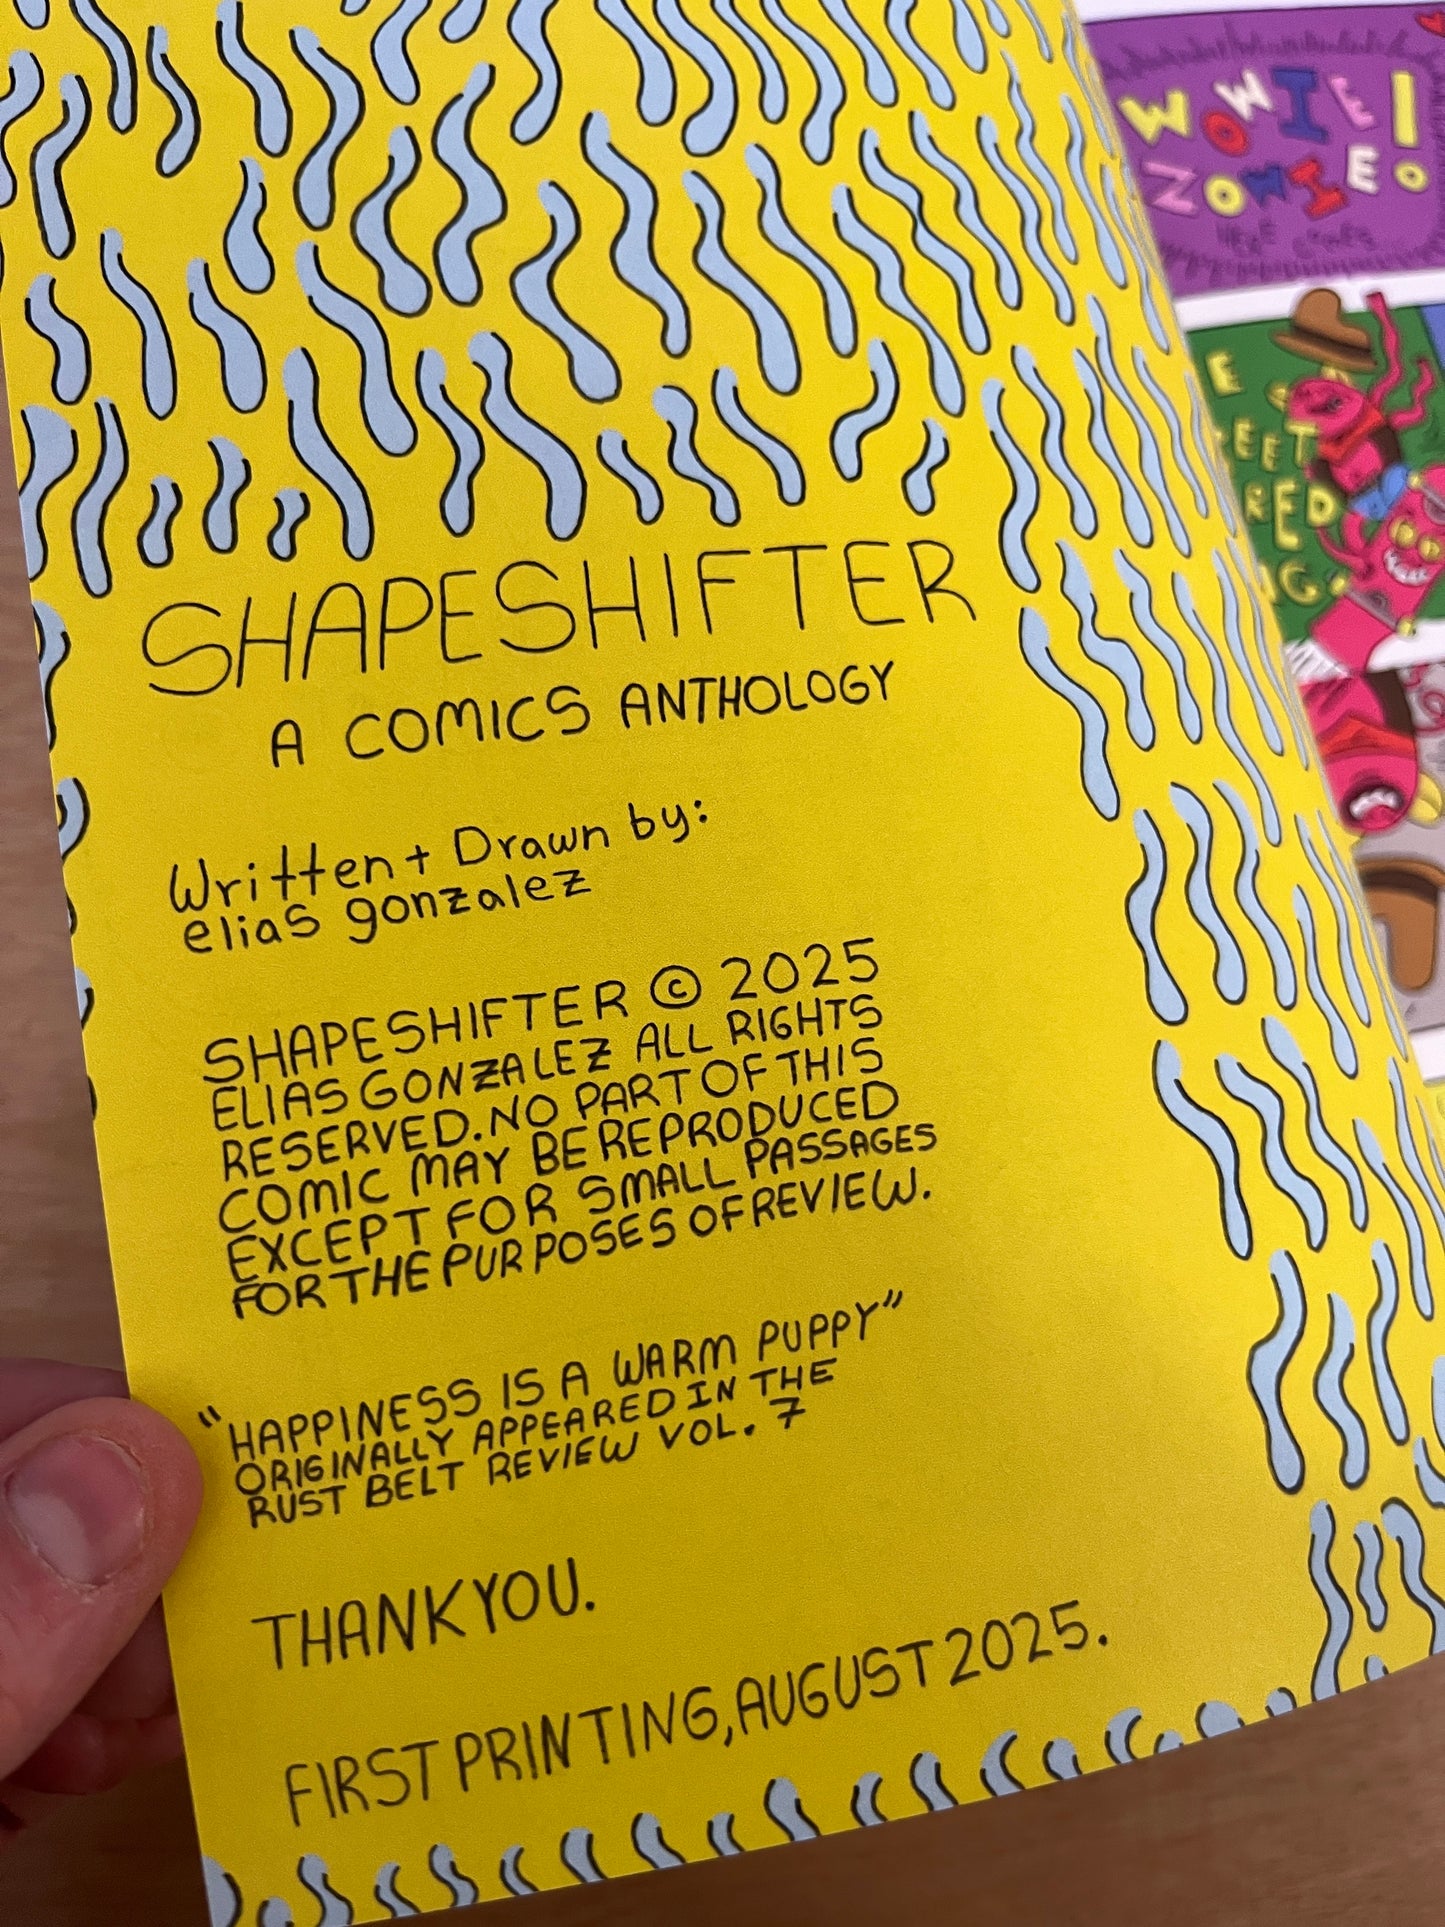 SHAPESHIFTER
A COMICS ANTHOLOGY
Written + Drawn by:
elias gonzalez
SHAPESHIFTER © 2025
ELIAS GONZALEZ ALL RIGHTS
RESERVED. NO PART OF THIS
COMIC MAY BE REPRODUCED
EXCEPT FOR SMALL PASSAGES
FOR THE PURPOSES OF REVIEW.
"HAPPINESS IS A WARM PUPPY"
ORIGINALLY APPEARED IN THE
RUST BELT REVIEW VOL. 7
THANK YOU.
FIRST PRINTING, AUGUST 2025.
WOWIE!
ZOWIE
HERE COMES